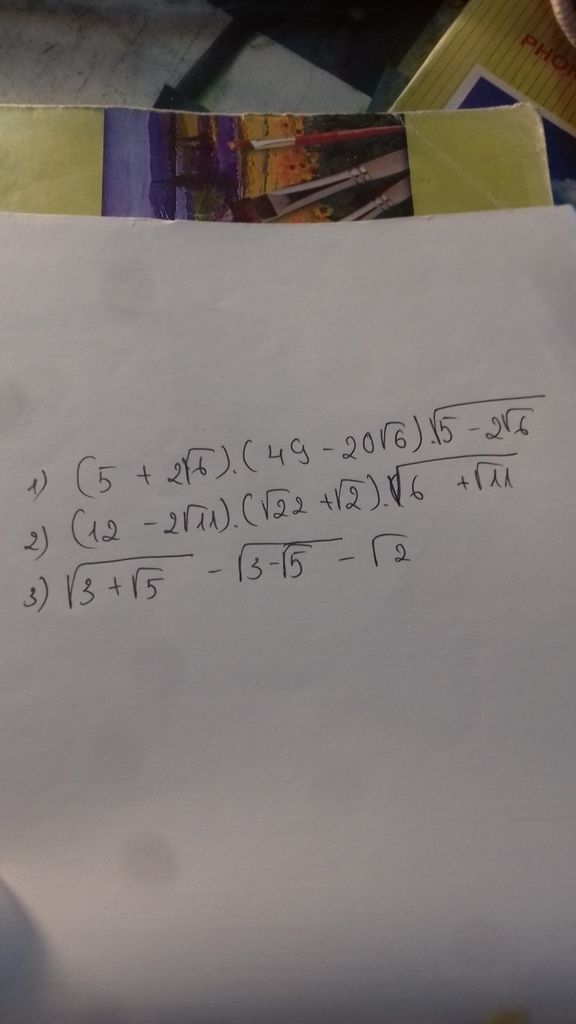 PHO
1) (5 + 2√6).(49 - 20√6).√(5 - 2√6)
2) (12 - 2√11).(√22 + √2).√(6 + √11)
3) √(3 + √5) - √(3 - √5) - √2